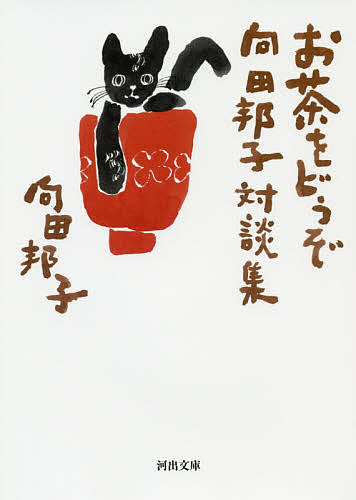 お茶をどうぞ
向田邦子 対談集
向田邦子
河出文庫